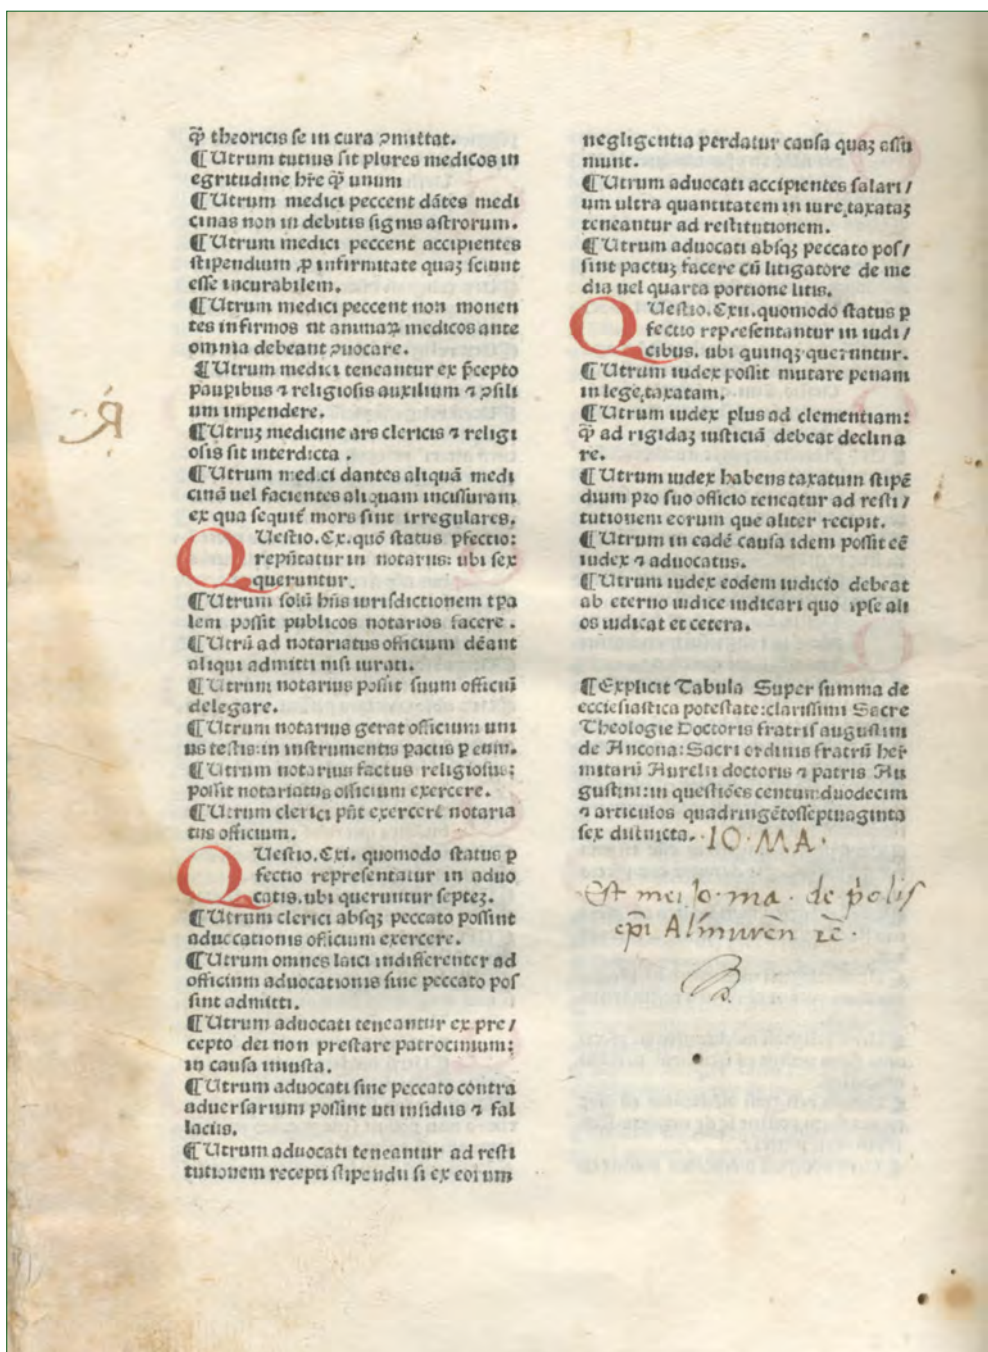 qꝙ theoricis se in cura ꝓmittat.
¶ Utrum tutius sit plures medicos in
egritudine hr̄e qꝙ unum
¶ Utrum medici peccent dātes medi
cinas non in debitis signis astrorum.
¶ Utrum medici peccent accipientes
stipendium ꝓ infirmitate quaꝫ sciunt
esse incurabilem.
¶ Utrum medici peccent non monen
tes infirmos ut animaꝝ medicos ante
omnia debeant ꝯuocare.
¶ Utrum medici teneantur ex p̄cepto
pauꝑibus ⁊ religiosis auxilium ⁊ ꝯsili
um impendere.
¶ Utruꝫ medicine ars clericis ⁊ religi
osis sit interdicta .
¶ Utrum medici dantes aliquā medi
cinā uel facientes aliquam incissuram
ex qua sequit᷑ mors sint irregulares.
QUestio.Cx.quō status ꝑfectio:
rep̄ntatur in notariis: ubi sex
queruntur.
¶ Utrum solū hn̄s iurisdictionem tpa
lem possit publicos notarios facere .
¶ Utrū ad notariatus officium dēant
aliqui admitti nisi iurati.
¶ Utrum notarius possit suum officiū
delegare.
¶ Utrum notarius gerat officium uni
us testis: in instrumentis factis ꝑ eum.
¶ Utrum notarius factus religiosus:
possit notariatus officium exercere.
¶ Utrum clerici pn̄t exercere notaria
tus officium.
QUestio.Cxi. quomodo status ꝑ
fectio representatur in aduo
catis. ubi queruntur septeꝫ.
¶ Utrum clerici absqꝫ peccato possint
aduocationis officium exercere.
¶ Utrum omnes laici indifferenter ad
officium aduocationis sine peccato pos
sint admitti.
¶ Utrum aduocati teneantur ex pre/
cepto dei non prestare patrocinium:
in causa iniusta.
¶ Utrum aduocati sine peccato contra
aduersarium possint uti insidiis ⁊ fal
laciis.
¶ Utrum aduocati teneantur ad resti
tutionem recepti stipendii si ex eorum
negligentia perdatur causa quaꝫ assū
munt.
¶ Utrum aduocati accipientes salari/
um ultra quantitatem in iure taxataꝫ
teneantur ad restitutionem.
¶ Utrum aduocati absqꝫ peccato pos/
sint pactuꝫ facere cū litigatore de me
dia uel quarta portione litis.
QUestio.Cxii.quomodo status ꝑ
fectio representantur in iudi/
cibus. ubi quinqꝫ queruntur.
¶ Utrum iudex possit mutare penam
in lege taxatam.
¶ Utrum iudex plus ad clementiam:
qꝙ ad rigidaꝫ iusticiā debeat declina
re.
¶ Utrum iudex habens taxatum stipē
dium pro suo officio teneatur ad resti/
tutionem eorum que aliter recipit.
¶ Utrum in eadē causa idem possit eē
iudex ⁊ aduocatus.
¶ Utrum iudex eodem iudicio debeat
ab eterno iudice iudicari quo ipse ali
os iudicat et cetera.
¶ Explicit Tabula Super summa de
ecclesiastica potestate: clarissimi Sacre
Theologie Doctoris fratris augustini
de Ancona: Sacri ordinis fratrū her̄
mitarū Aurelii doctoris ⁊ patris Au
gustini: in questiōes centum duodecim
⁊ articulos quadringētosseptuaginta
sex distincta. · IO · MA ·
Est mei Jo · ma · de polis
ep̄i Almuren̄